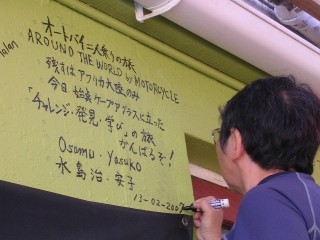 オートバイ二人乗りの旅
AROUND THE WORLD by MOTORCYCLE
残すはアフリカ大陸のみ
今日 始発ケープアグラスに立った
「チャレンジ・発見・学び」の旅
がんばるぞ!
Osamu・yasuko
水島治・安子
13-02-2007